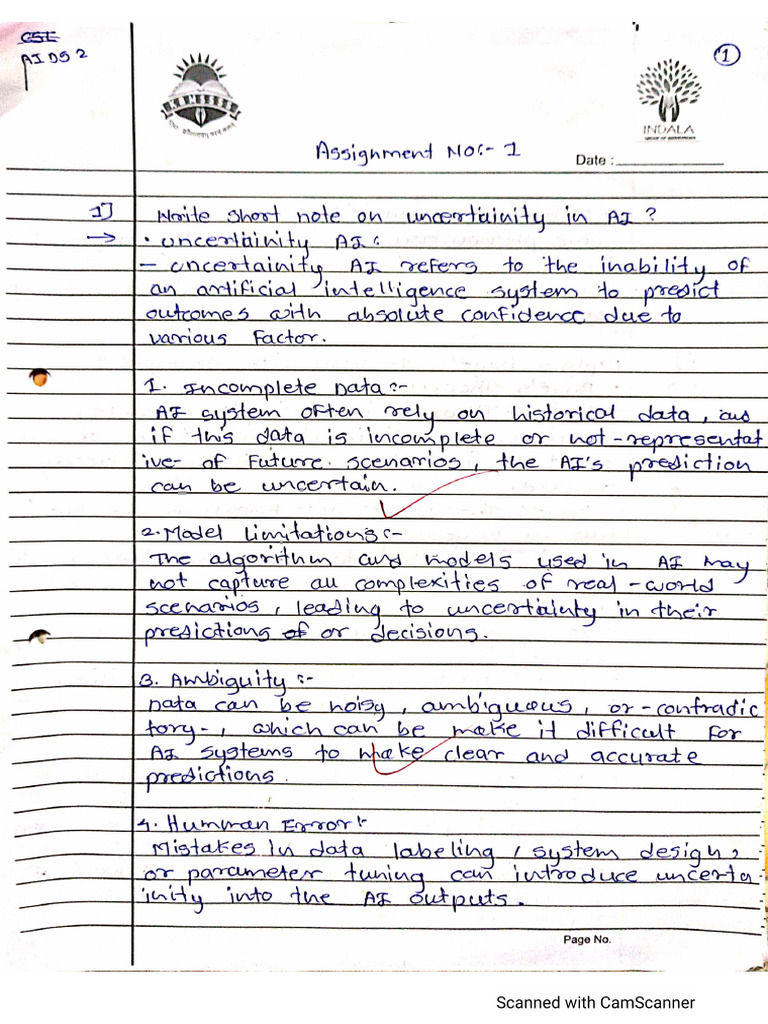 CSE
AIDS 2
1
KBMSSSS
INDALA
Assignment No:- 1
Date :
1] Write short note on uncertainity in AI ?
→ • uncertainity AI :
- uncertainity AI refers to the inability of
an artificial intelligence system to predict
outcomes with absolute confidence due to
various factor.
1. Incomplete Data :-
AI system often rely on historical data, and
if this data is incomplete or not-representat
ive- of future scenarios, the AI's prediction
can be uncertain.
2. Model Limitations :-
The algorithm and models used in AI may
not capture all complexities of real-world
scenarios, leading to uncertainty in their
predictions of or decisions.
3. Ambiguity :-
Data can be noisy, ambiguous, or-contradic
tory-, which can be make it difficult for
AI systems to make clear and accurate
predictions.
4. Humman Error:-
Mistakes In data labeling, system design,
or parameter tuning can introduce uncerta
inity into the AI outputs.
Page No.
Scanned with CamScanner